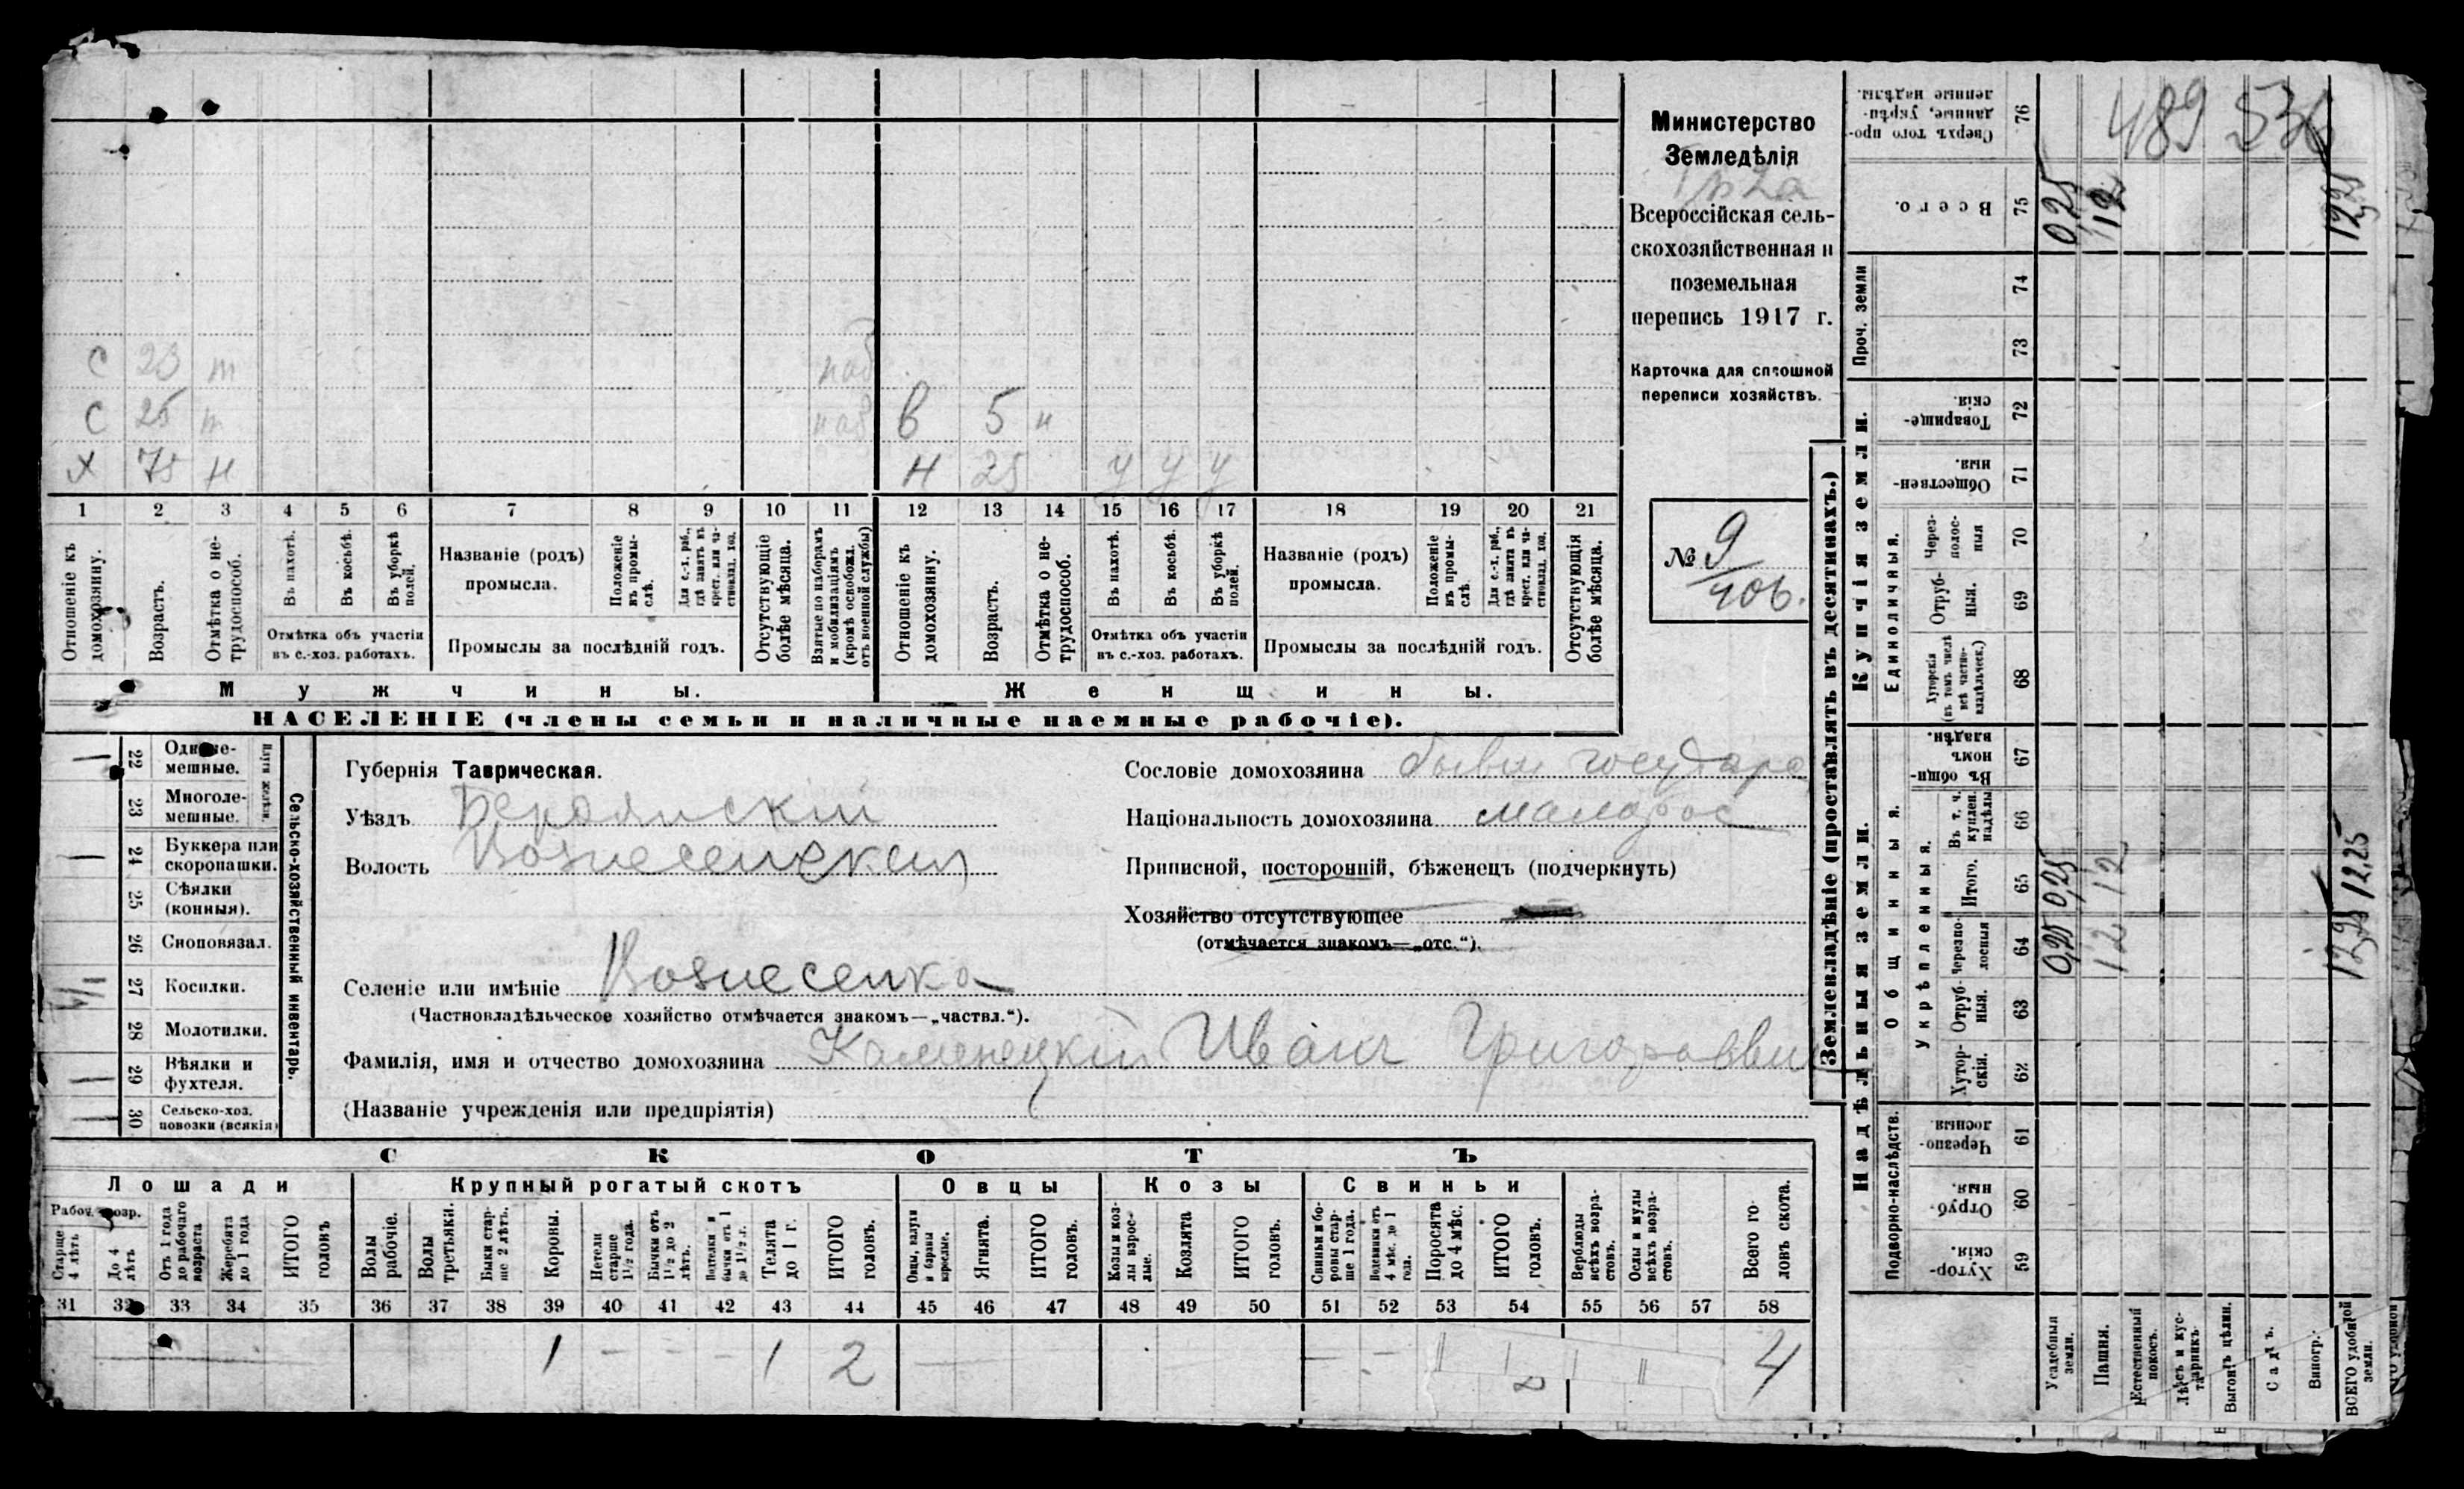 Министерство
Земледѣлія
Всероссійская сель-
скохозяйственная и
поземельная
перепись 1917 г.
Карточка для сплошной
переписи хозяйствъ.
№ 9
406.
С 23 т
С 25 т
В 5 н
Х 75 н
Н 25 У У У
1 2 3 4 5 6 7 8 9 10 11 12 13 14 15 16 17 18 19 20 21
Отношеніе къ домохозяину.
Возрастъ.
Отмѣтка о не-трудоспособ.
Въ пахотѣ.
Въ косьбѣ.
Въ уборкѣ полей.
Отмѣтка объ участіи
въ с.-хоз. работахъ.
Названіе (родъ)
промысла.
Положеніе въ промы-слѣ.
Для с.-х. раб., гдѣ занятъ въ крест. или ча-стновлад. хоз.
Промыслы за послѣдній годъ.
Отсутствующіе болѣе мѣсяца.
Взятые по наборамъ и мобилизаціямъ (кромѣ освобожд. отъ военной службы)
Отношеніе къ домохозяину.
Возрастъ.
Отмѣтка о не-трудоспособ.
Въ пахотѣ.
Въ косьбѣ.
Въ уборкѣ полей.
Отмѣтка объ участіи
въ с.-хоз. работахъ.
Названіе (родъ)
промысла.
Положеніе въ промы-слѣ
Для с.-х. раб., гдѣ занята въ крест. или ча-стновлад. хоз.
Промыслы за послѣдній годъ.
Отсутствующія болѣе мѣсяца.
Мужчины.
Женщины.
НАСЕЛЕНІЕ (члены семьи и наличные наемные рабочіе).
22 Одноле-мешные.
23 Многоле-мешные.
Плуги желѣзн.
24 Буккера или скоропашки.
25 Сѣялки (конныя).
26 Сноповязал.
27 Косилки.
28 Молотилки.
29 Вѣялки и фухтеля.
30 Сельско-хоз. повозки (всякія)
Сельско-хозяйственный инвентарь.
Губернія Таврическая.
Уѣздъ Бердянскій
Волость Вознесенская
Сословіе домохозяина бывш государ
Національность домохозяина малорос
Приписной, посторонній, бѣженецъ (подчеркнуть)
Хозяйство отсутствующее
(отмѣчается знакомъ—„отс.“).
Селеніе или имѣніе Вознесенка
(Частновладѣльческое хозяйство отмѣчается знакомъ—„частвл.“).
Фамилія, имя и отчество домохозяина Каменецкій Иванъ Григорьевич
(Названіе учрежденія или предпріятія)
СКОТЪ
Лошади
Крупный рогатый скотъ
Овцы
Козы
Свиньи
Рабоч. возр.
Старше 4 лѣтъ
До 4 лѣтъ
Отъ 1 года до рабочаго возраста
Жеребята до 1 года
ИТОГО головъ
Волы рабочіе.
Волы третьяки.
Быки стар-ше 2 лѣтъ.
Коровы.
Нетели старше 1½ года.
Бычки отъ 1½ до 2 лѣтъ.
Подтелки и бычки отъ 1 до 1½ л.
Телята до 1 г.
ИТОГО головъ.
Овцы, валухи и бараны взрослые.
Ягнята.
ИТОГО головъ.
Козы и коз-лы взрос-лые.
Козлята
ИТОГО головъ.
Свиньи и бо-ровы стар-ше 1 года.
Подсвинки отъ 4 мѣс. до 1 года.
Поросята до 4 мѣс.
ИТОГО головъ.
Верблюды всѣхъ возра-стовъ.
Ослы и мулы всѣхъ возра-стовъ.
Всего го-ловъ скота.
31 32 33 34 35 36 37 38 39 40 41 42 43 44 45 46 47 48 49 50 51 52 53 54 55 56 57 58
1 — — — 1 2 4
Землевладѣніе (проставлять въ десятинахъ.)
Надѣльныя земли.
Купчія земли.
Проч. земли
Общинныя.
Укрѣпленныя.
Подворно-наслѣдств.
Единоличныя.
Сверхъ того про-данные, укрѣп-ленные надѣлы. 76
489 536
Всего. 75 0,25 12 12,25
74
73
Товарище-скія. 72
Обществен-ныя. 71
Через-полос-ныя 70
Отруб-ныя. 69
Хуторскія (въ томъ числѣ всѣ частно-владѣльческ.) 68
Въ общи-номъ владѣн. 67
Въ т. ч. куплен. надѣлы 66
Итого. 65 0,25 12 12,25
Черезпо-лосныя 64 0,25 12 12,25
Отруб-ныя. 63
Хутор-скія. 62
Черезпо-лосныя. 61
Отруб-ныя. 60
Хутор-скія. 59
Усадебныя земли.
Пашня.
Естественный покосъ.
Лѣсъ и кус-тарникъ
Выгонъ цѣлин.
Садъ.
Виногр.
ВСЕГО удобной земли.